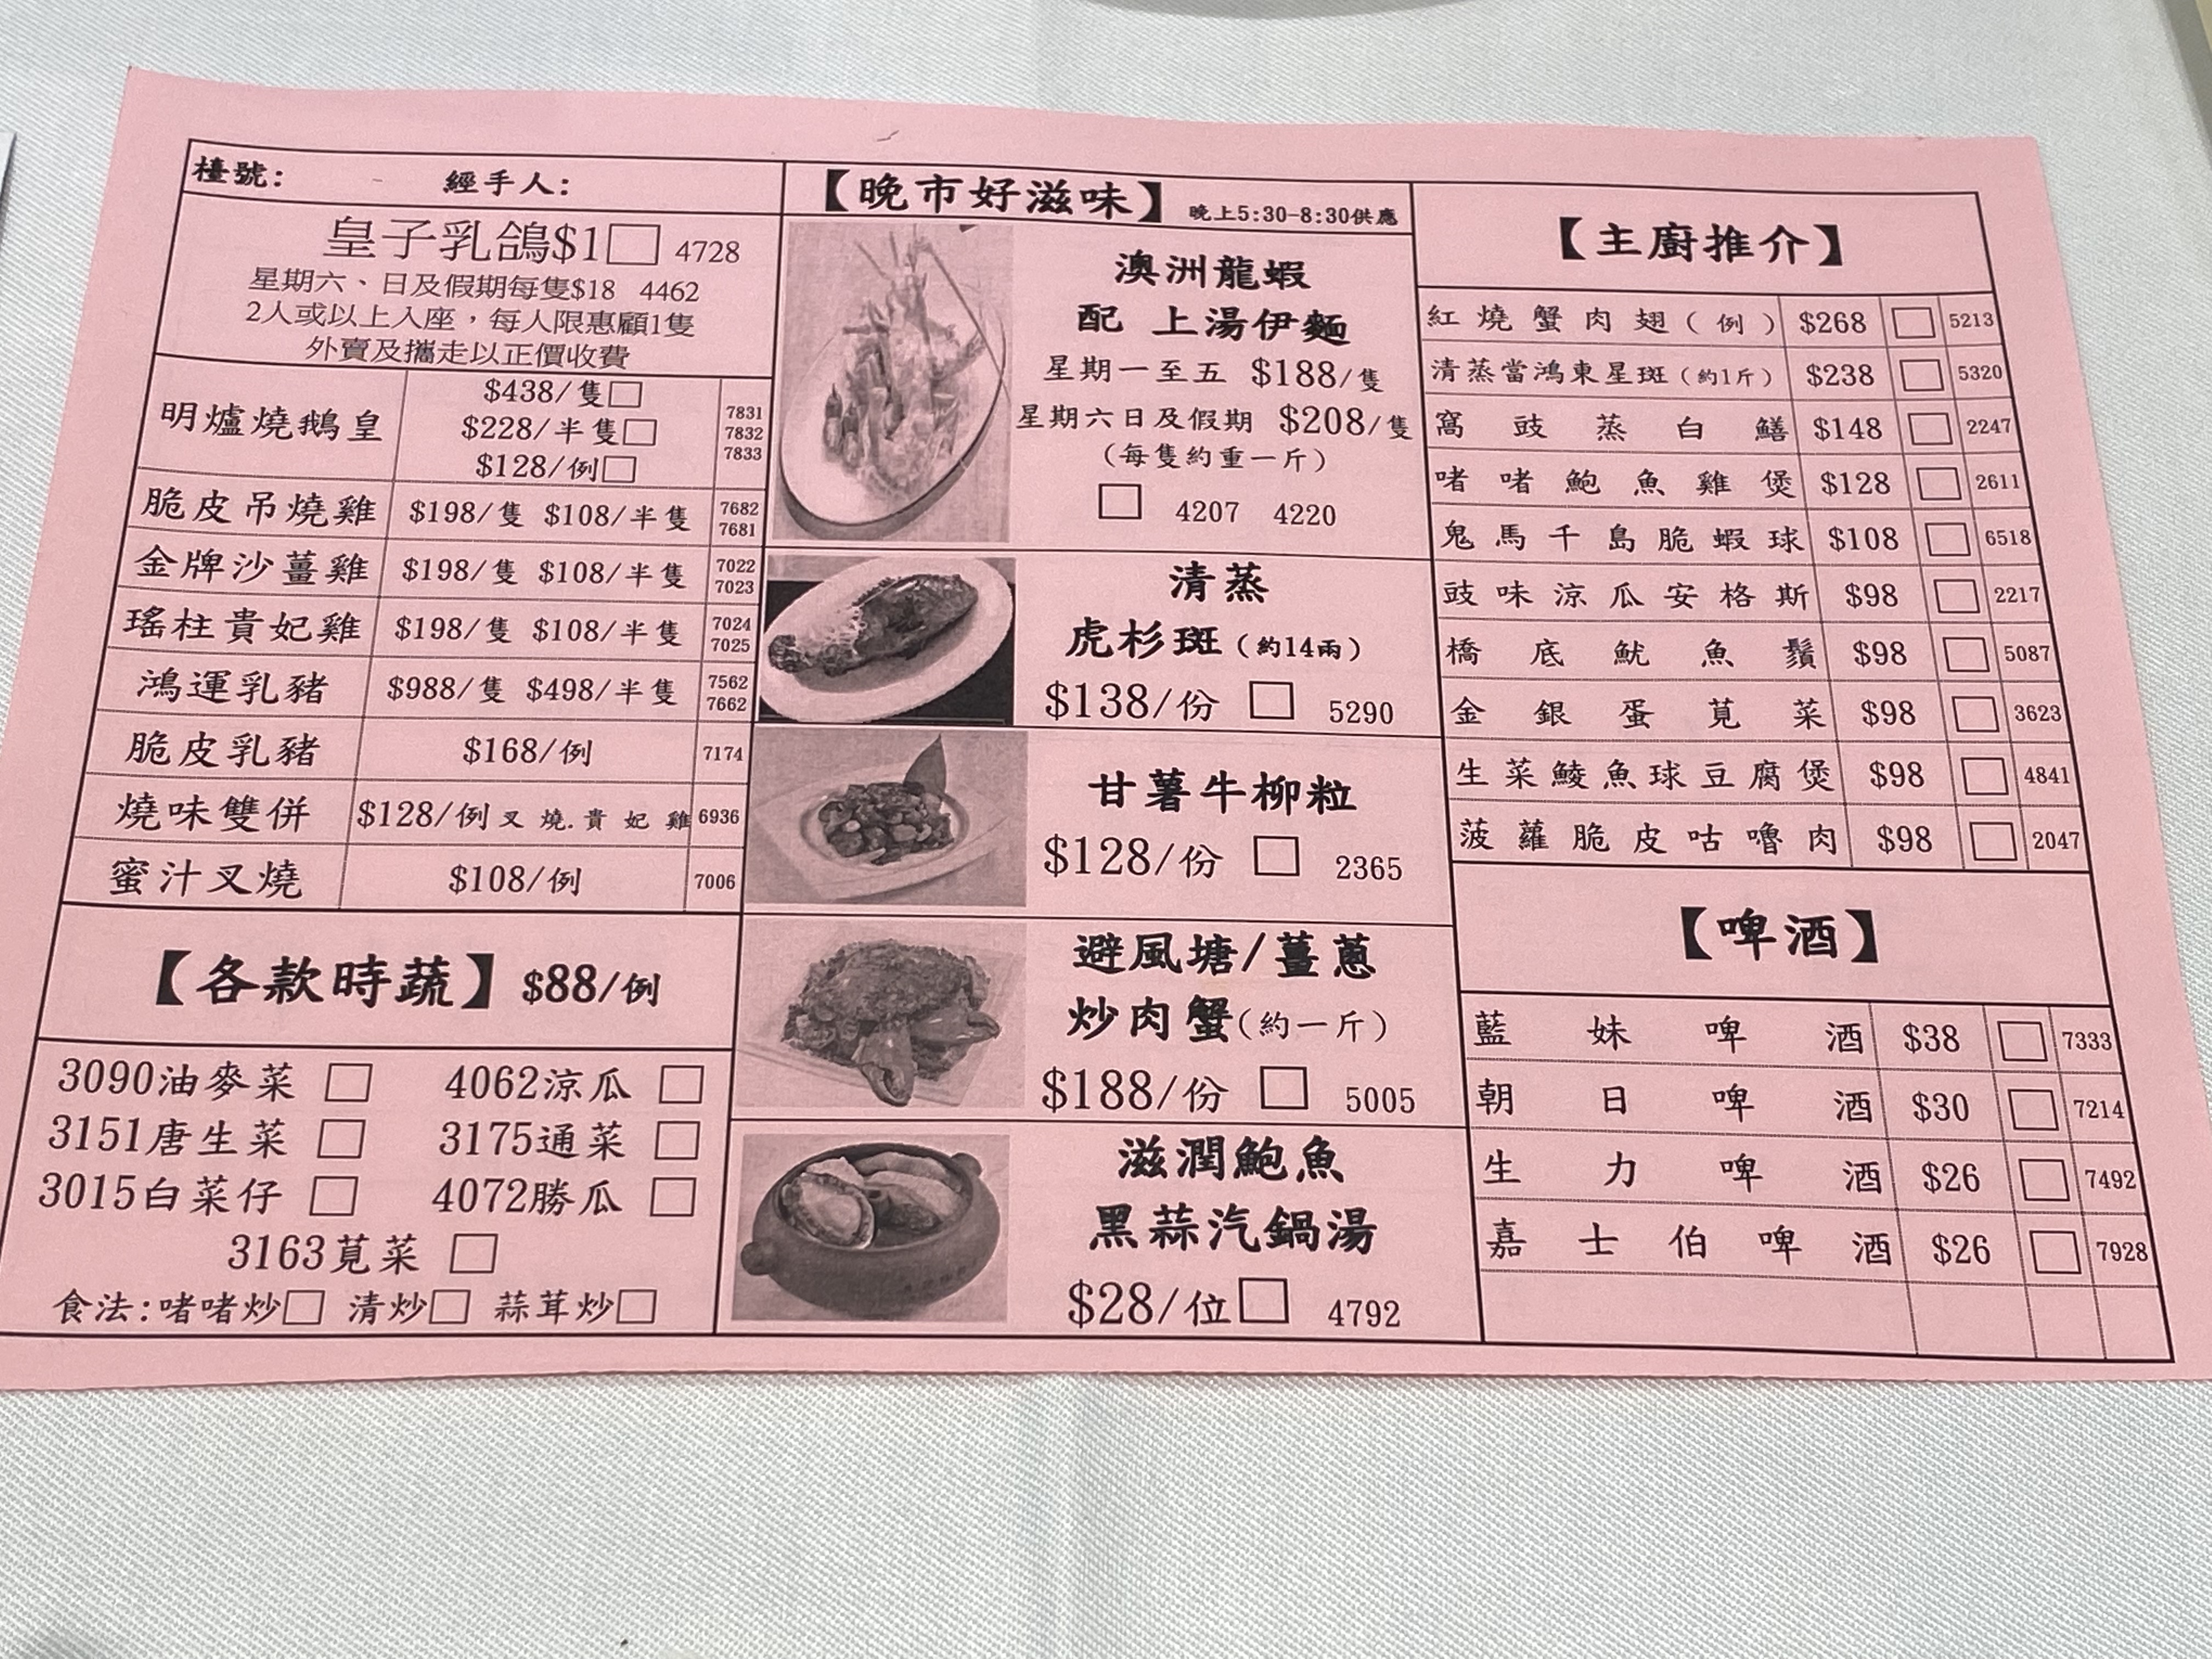 檯號:　經手人:
皇子乳鴿$1□ 4728
星期六、日及假期每隻$18 4462
2人或以上入座，每人限惠顧1隻
外賣及攜走以正價收費
明爐燒鵝皇 $438/隻□ 7831
$228/半隻□ 7832
$128/例□ 7833
脆皮吊燒雞 $198/隻 $108/半隻 7682 7681
金牌沙薑雞 $198/隻 $108/半隻 7022 7023
瑤柱貴妃雞 $198/隻 $108/半隻 7024 7025
鴻運乳豬 $988/隻 $498/半隻 7562 7662
脆皮乳豬 $168/例 7174
燒味雙併 $128/例 叉燒.貴妃雞 6936
蜜汁叉燒 $108/例 7006
【各款時蔬】$88/例
3090油麥菜 □ 4062涼瓜 □
3151唐生菜 □ 3175通菜 □
3015白菜仔 □ 4072勝瓜 □
3163莧菜 □
食法:啫啫炒□ 清炒□ 蒜茸炒□
【晚市好滋味】晚上5:30-8:30供應
澳洲龍蝦
配 上湯伊麵
星期一至五 $188/隻
星期六日及假期 $208/隻
(每隻約重一斤)
□ 4207 4220
清蒸
虎杉斑(約14兩)
$138/份 □ 5290
甘薯牛柳粒
$128/份 □ 2365
避風塘/薑蔥
炒肉蟹(約一斤)
$188/份 □ 5005
滋潤鮑魚
黑蒜汽鍋湯
$28/位□ 4792
【主廚推介】
紅燒蟹肉翅(例) $268 □ 5213
清蒸當鴻東星斑(約1斤) $238 □ 5320
窩豉蒸白鱔 $148 □ 2247
啫啫鮑魚雞煲 $128 □ 2611
鬼馬千島脆蝦球 $108 □ 6518
豉味涼瓜安格斯 $98 □ 2217
橋底魷魚鬚 $98 □ 5087
金銀蛋莧菜 $98 □ 3623
生菜鯪魚球豆腐煲 $98 □ 4841
菠蘿脆皮咕嚕肉 $98 □ 2047
【啤酒】
藍妹啤酒 $38 □ 7333
朝日啤酒 $30 □ 7214
生力啤酒 $26 □ 7492
嘉士伯啤酒 $26 □ 7928